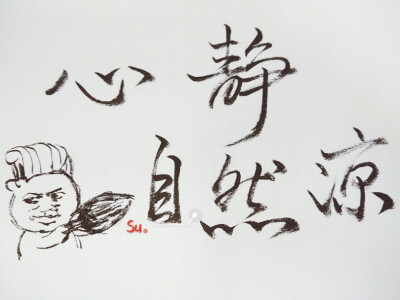 心静
自然凉
Su。